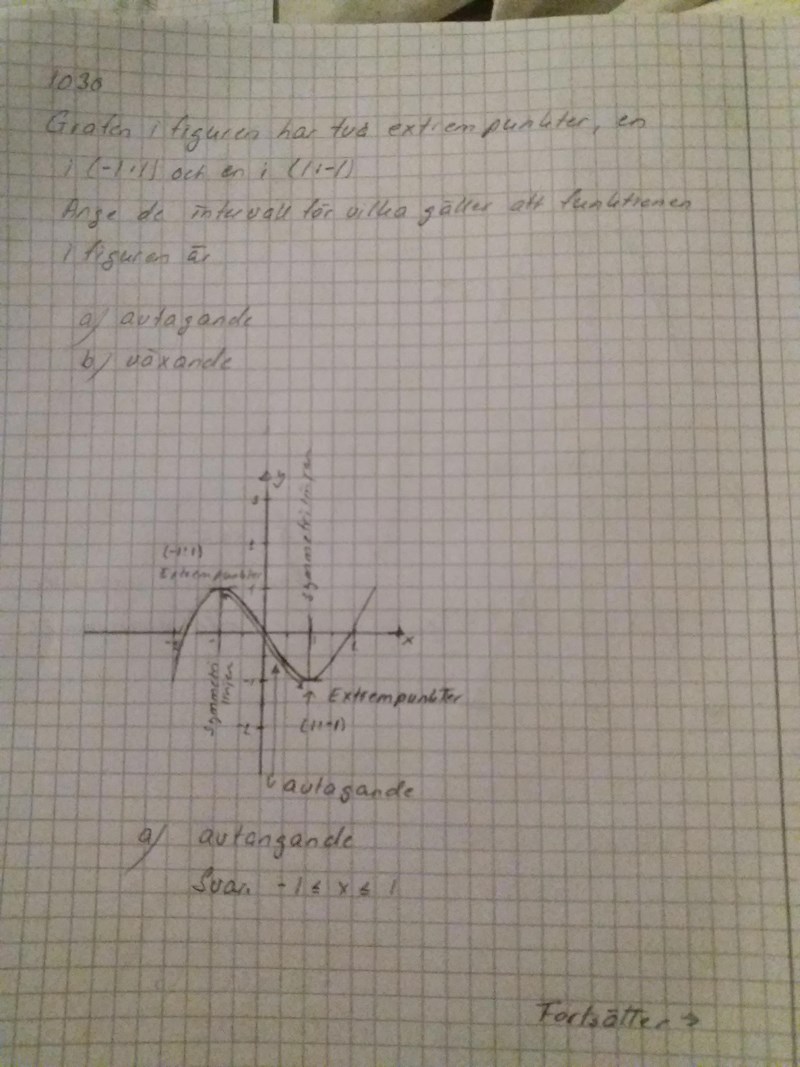 1038
Grafen i figuren har två extrempunkter, en
i (-1;1) och en i (1;-1)
Ange de intervall för vilka gäller att funktionen
i figuren är
a) avtagande
b) växande
y
3
2
1
Symmetrilinjen
(-1;1)
Extrempunkter
-2
-1
1
2
x
Symmetri
linjen
-1
-2
Extrempunkter
(1;-1)
avtagande
a) avtangande
Svar. -1 ≤ x ≤ 1
Fortsätter →